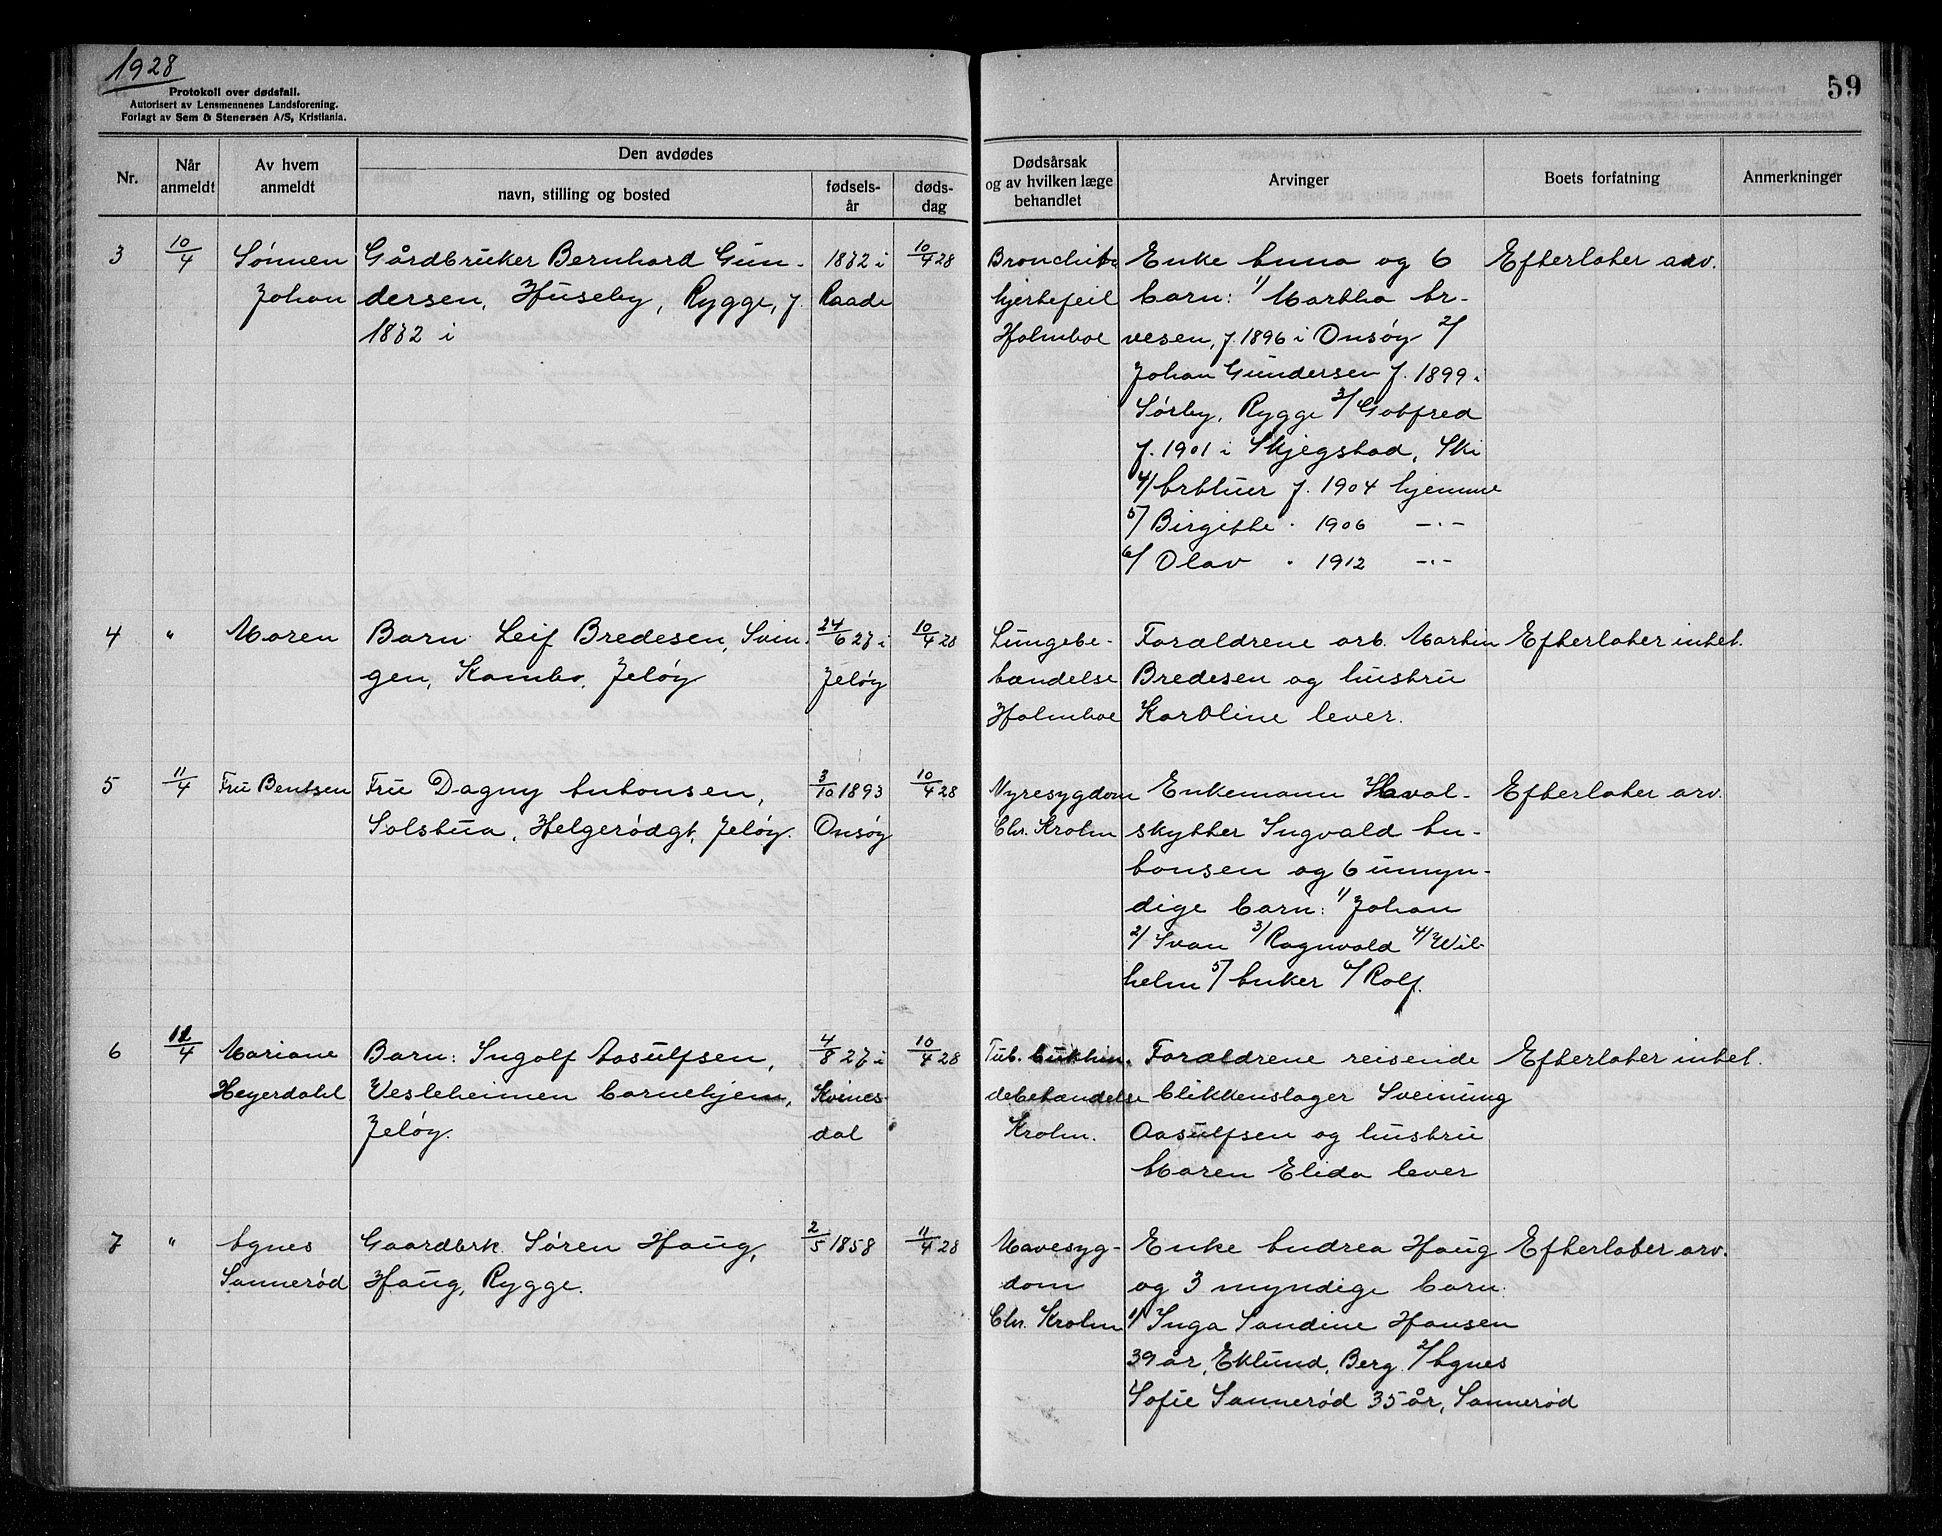 1928
59
Protokoll over dødsfall.
Autorisert av Lensmennenes Landsforening.
Forlagt av Sem & Stenersen A/S, Kristiania.
Nr.
Når anmeldt
Av hvem anmeldt
Den avdødes
navn, stilling og bosted
fødsels-år
døds-dag
Dødsårsak og av hvilken læge behandlet
Arvinger
Boets forfatning
Anmerkninger
3 10/4 Sønnen Gårdbruker Bernhard Gun- 1872 i 10/4 28 Bronchit Enke Anna og 6 Efterlater arv.
Johan dersen, Huseby, Rygge, f. Raade hjertefeil barn: 1/ Martha Ar-
1872 i Holmboe vesen, f. 1896 i Onsøy 2/
Johan Gundersen f. 1899 i
Sørby, Rygge 3/ Gotfred
f. 1901 i Skjegstad, Ski
4/ Arthur f. 1904 hjemme
5/ Birgithe " 1906 -"-
6/ Olav " 1912 -"-
4 " Maren Barn Leif Bredesen, Svin- 24/6 27 i 10/4 28 Lungebe- Forældrene arb. Martin Efterlater intet.
gen, Kambo, Jeløy Jeløy tændelse Bredesen og hustru
Holmboe Karoline lever.
5 11/4 Fru Bentsen Fru Dagny Antonsen, 3/10 1893 10/4 28 Nyresygdom Enkemann Hval- Efterlater arv.
Solstua, Helgerødgt, Jeløy. Onsøy Chr. Krohn skytter Ingvald An-
tonsen og 6 umyn-
dige barn: 1/ Johan
2/ Svan 3/ Ragnvald 4/ Wil-
helm 5/ Anker 6/ Rolf.
6 12/4 Mariane Barn: Ingolf Aasulfsen, 4/8 27 i 10/4 28 Tub. Forældrene reisende Efterlater intet.
Heyerdahl Vesleheimen barnehjem, Kvines- debetændelse blikkenslager Sveinung
Jeløy. dal Krohn. Aasulfsen og hustru
Maren Elida lever
7 " Agnes Gaardbrk. Søren Haug, 2/5 1858 11/4 28 Mavesyg- Enke Andrea Haug Efterlater arv.
Sannerød Haug, Rygge. dom og 3 myndige barn:
Chr. Krohn 1/ Inga Sandine Hansen
39 år, Eklund, Berg. 2/ Agnes
Sofie Sannerød 35 år, Sannerød